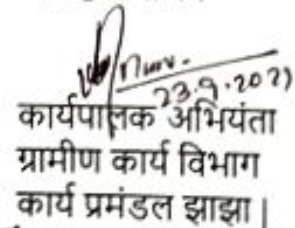 23.9.202)
कार्यपालक अभियंता
ग्रामीण कार्य विभाग
कार्य प्रमंडल झाझा।